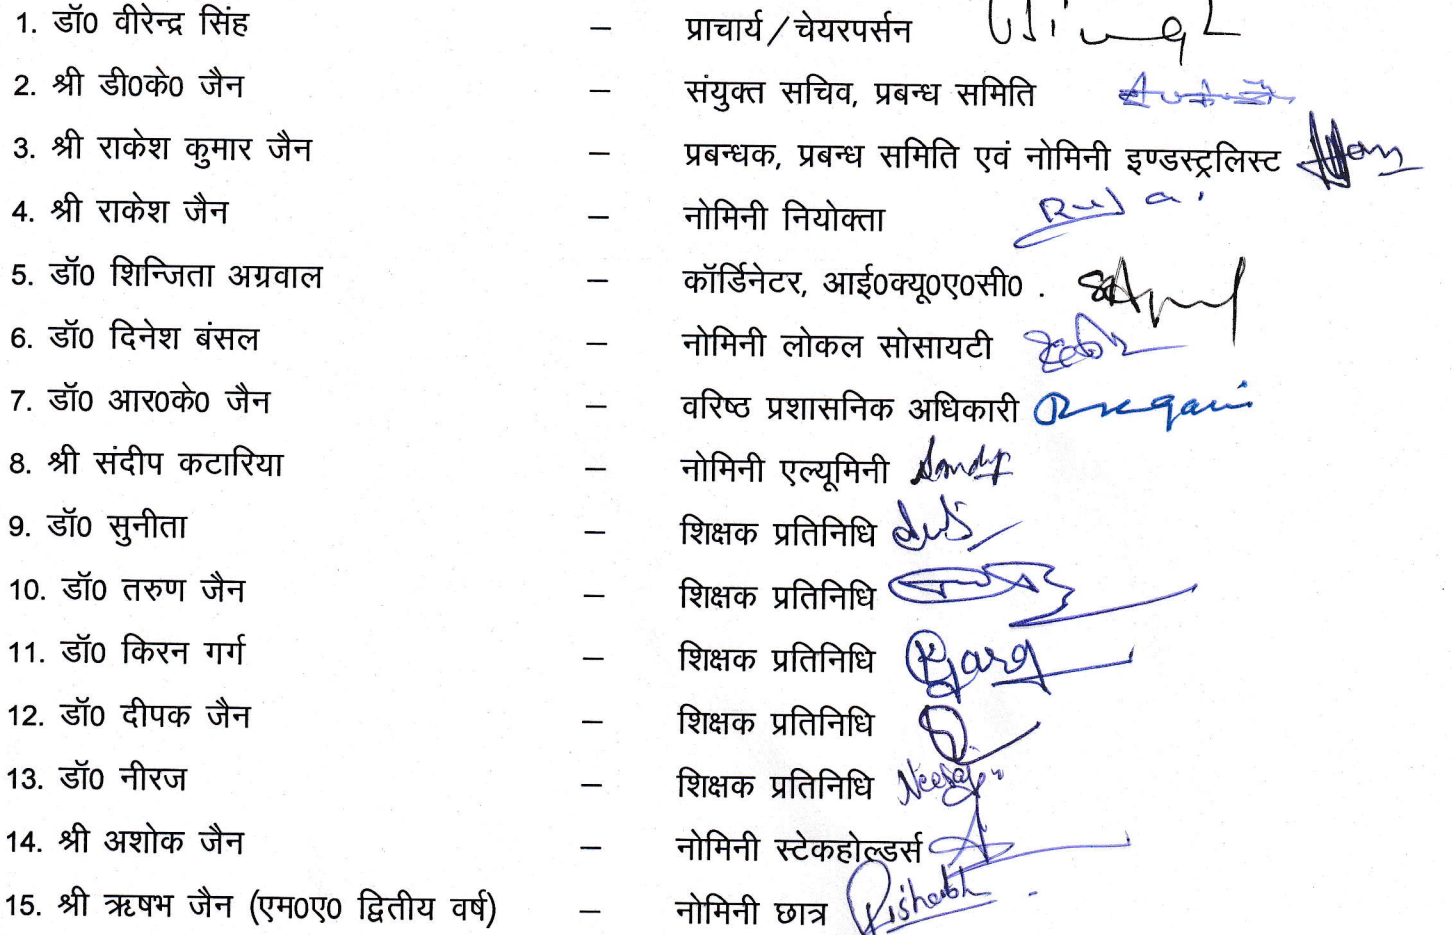 1. डॉ0 वीरेन्द्र सिंह – प्राचार्य/चेयरपर्सन
2. श्री डी0के0 जैन – संयुक्त सचिव, प्रबन्ध समिति
3. श्री राकेश कुमार जैन – प्रबन्धक, प्रबन्ध समिति एवं नोमिनी इण्डस्ट्रलिस्ट
4. श्री राकेश जैन – नोमिनी नियोक्ता
5. डॉ0 शिन्जिता अग्रवाल – कॉर्डिनेटर, आई0क्यू0ए0सी0 .
6. डॉ0 दिनेश बंसल – नोमिनी लोकल सोसायटी
7. डॉ0 आर0के0 जैन – वरिष्ठ प्रशासनिक अधिकारी
8. श्री संदीप कटारिया – नोमिनी एल्यूमिनी
9. डॉ0 सुनीता – शिक्षक प्रतिनिधि
10. डॉ0 तरुण जैन – शिक्षक प्रतिनिधि
11. डॉ0 किरन गर्ग – शिक्षक प्रतिनिधि
12. डॉ0 दीपक जैन – शिक्षक प्रतिनिधि
13. डॉ0 नीरज – शिक्षक प्रतिनिधि Neeraj
14. श्री अशोक जैन – नोमिनी स्टेकहोल्डर्स
15. श्री ऋषभ जैन (एम0ए0 द्वितीय वर्ष) – नोमिनी छात्र Rishabh